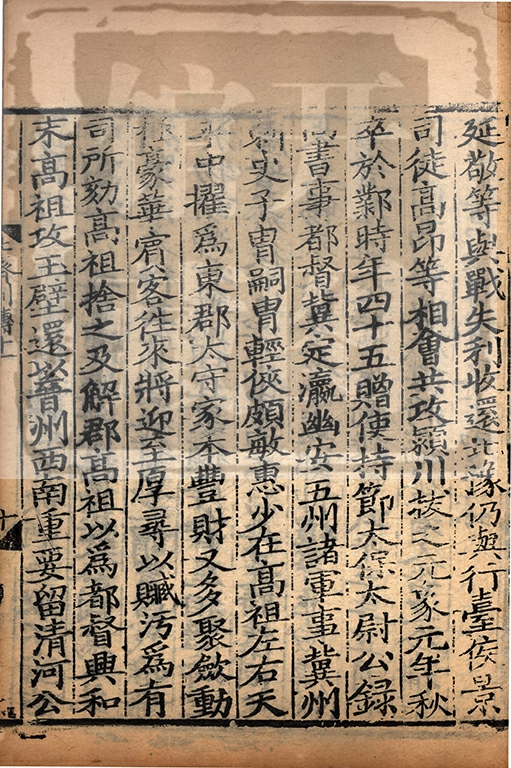 延敬等與戰失利收還北豫仍與行臺侯景
司徒高昂等相會共攻潁川拔之元象元年秋
卒於鄴時年四十五贈使持節太保太尉公録
尚書事都督冀定瀛幽安五州諸軍事冀州
刺史子胄嗣胄輕俠頗敏惠少在高祖左右天
平中擢為東郡太守家本豐財又多聚斂動
極豪華賓客往來將迎至厚尋以贓污為有
司所劾高祖捨之及解郡高祖以為都督興和
末高祖攻玉壁還以晉州西南重要留清河公